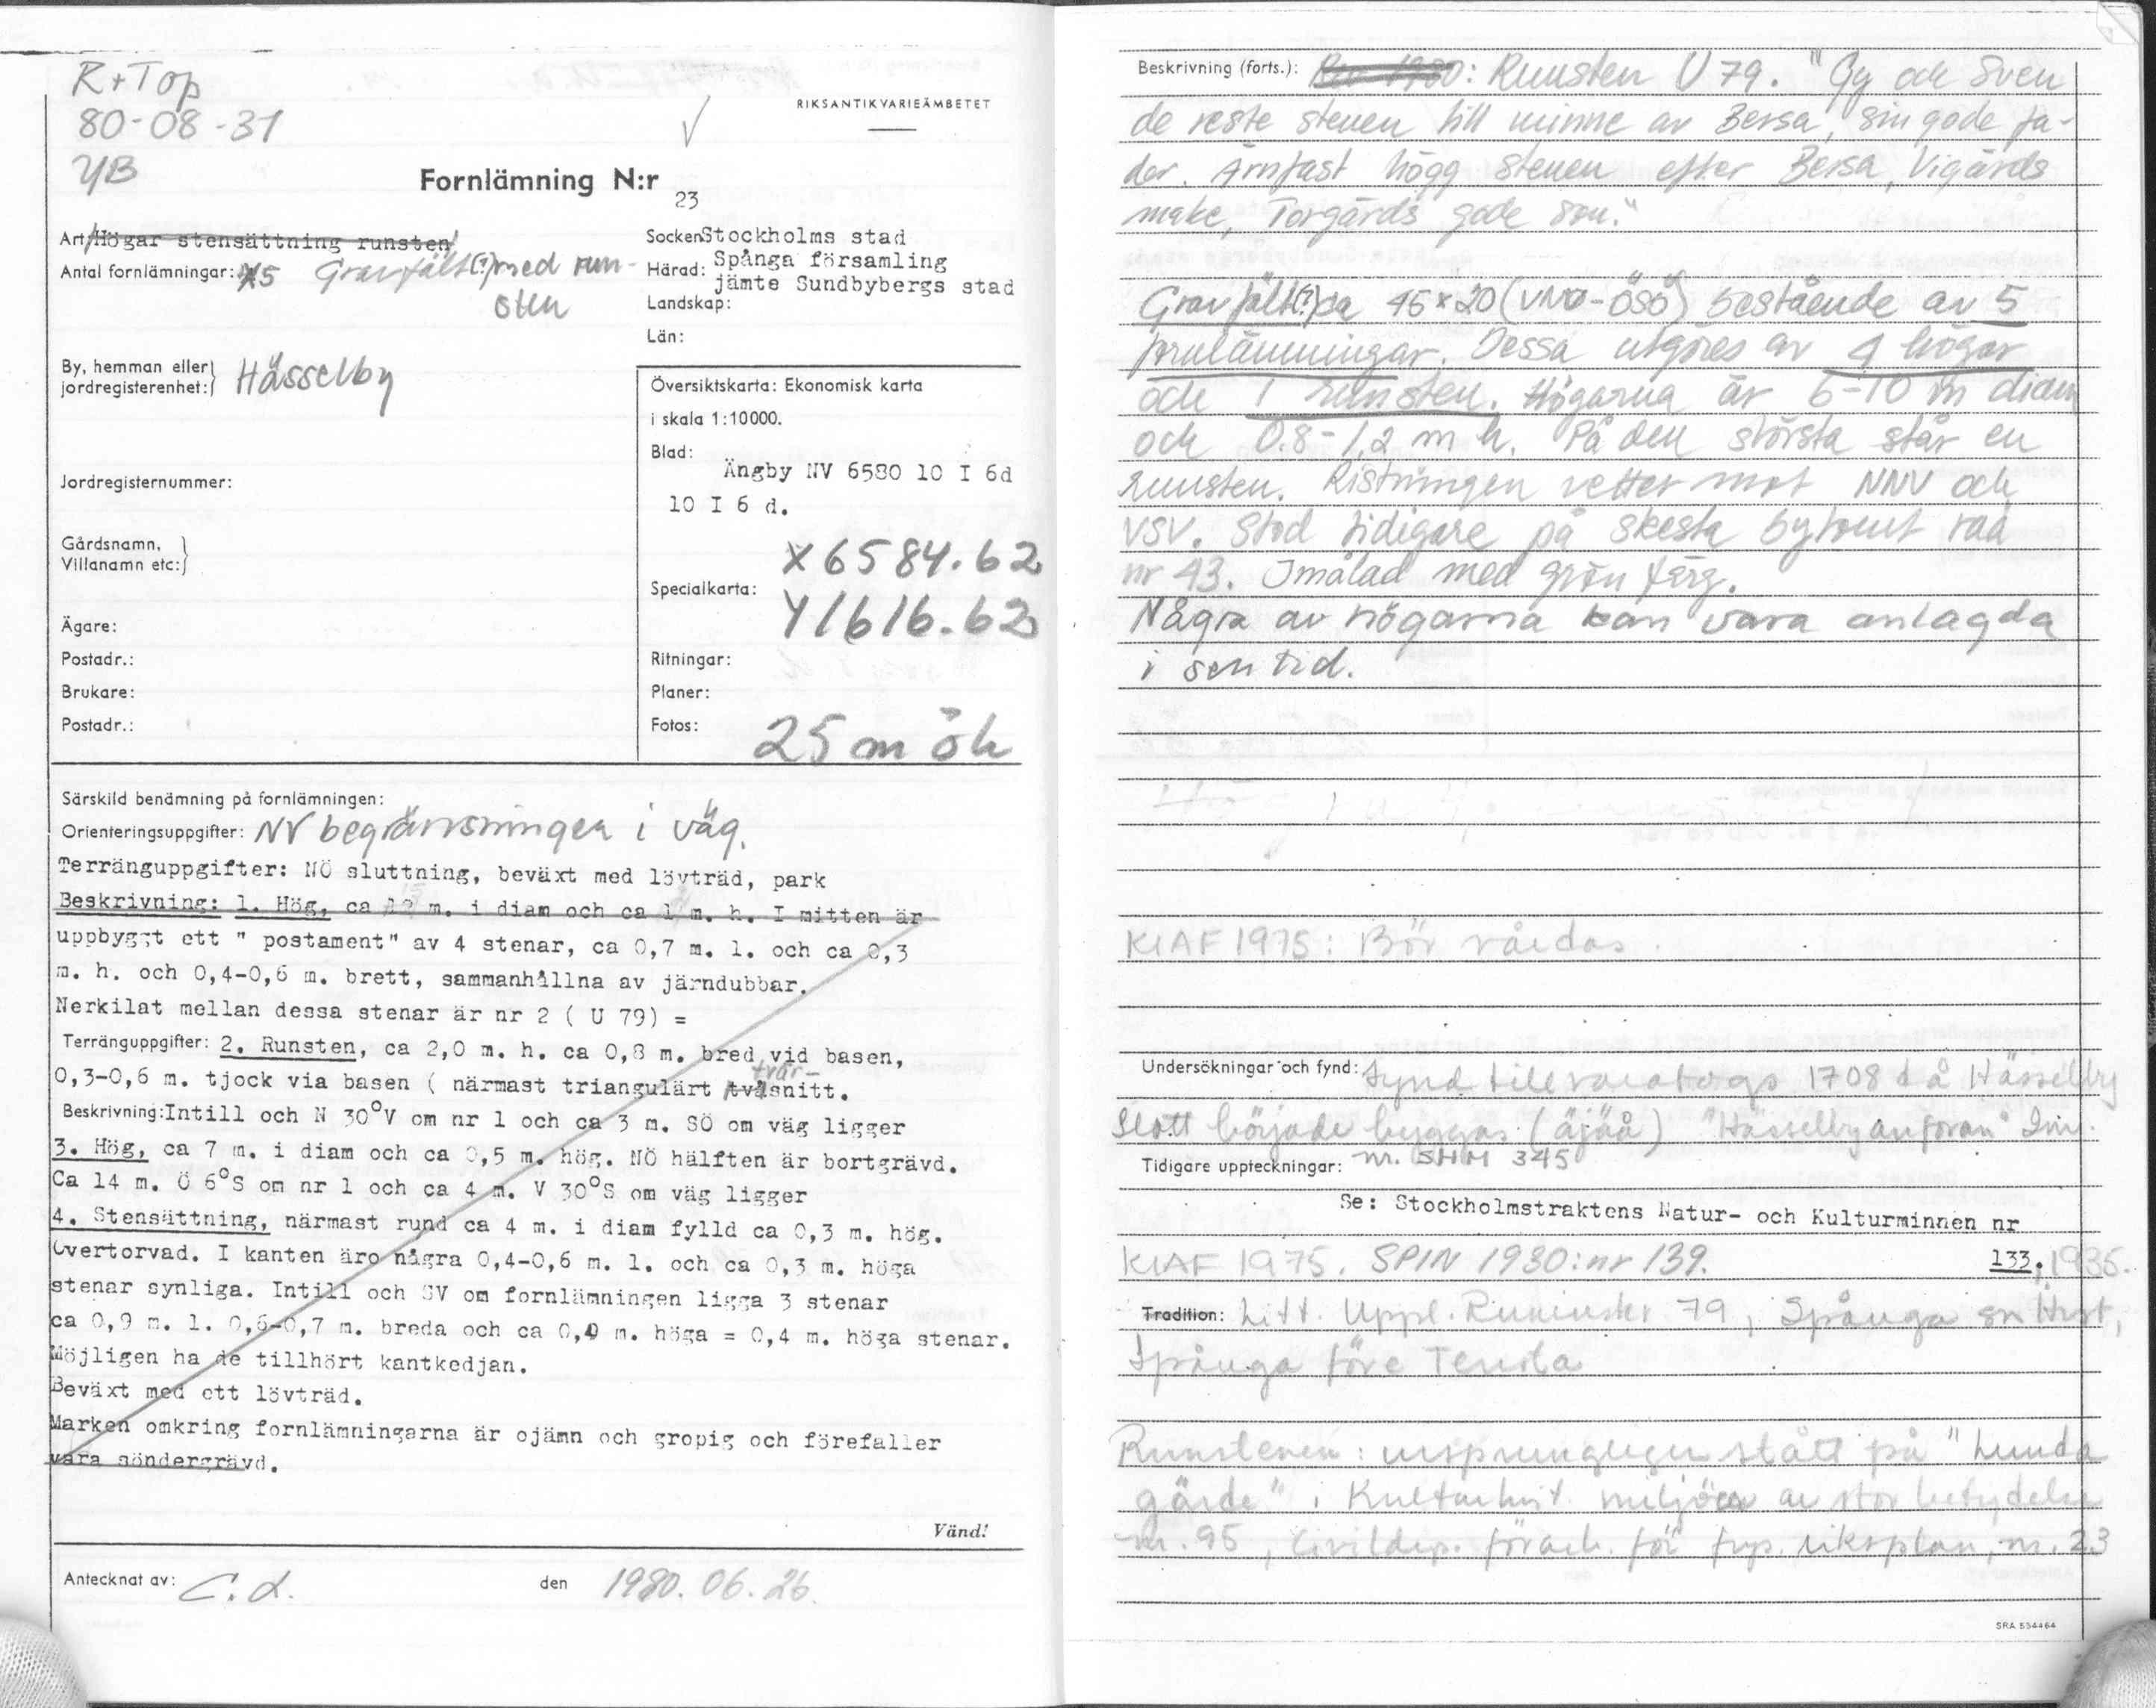 R+Top
80-08-31
YB
RIKSANTIKVARIEÄMBETET
Fornlämning N:r 23
Art/Högar stensättning runsten/
Antal fornlämningar: 5 Gravfält(?) med run-
sten
By, hemman eller jordregisterenhet: Hässelby
Jordregisternummer:
Gårdsnamn,
Villanamn etc:
Ägare:
Postadr.:
Brukare:
Postadr.:
Socken Stockholms stad
Härad: Spånga församling
jämte Sundbybergs stad
Landskap:
Län:
Översiktskarta: Ekonomisk karta
i skala 1:10000.
Blad:
Ängby NV 6580 10 I 6d
10 I 6 d.
X6584.62
Specialkarta: Y1616.62
Ritningar:
Planer:
Fotos: 25 m öh
Särskild benämning på fornlämningen:
Orienteringsuppgifter: NV begränsningen i väg.
Terränguppgifter: NÖ sluttning, beväxt med lövträd, park
Beskrivning: 1. Hög, ca m. i diam och ca 1 m. h. I mitten är
uppbyggt ett " postament" av 4 stenar, ca 0,7 m. l. och ca 0,3
m. h. och 0,4-0,6 m. brett, sammanhållna av järndubbar.
Nerkilat mellan dessa stenar är nr 2 ( U 79) =
Terränguppgifter: 2. Runsten, ca 2,0 m. h. ca 0,8 m. bred vid basen,
0,3-0,6 m. tjock via basen ( närmast triangulärt tvär-snitt.
Beskrivning: Intill och N 30°V om nr 1 och ca 3 m. SÖ om väg ligger
3. Hög, ca 7 m. i diam och ca 0,5 m. hög. NÖ hälften är bortgrävd.
Ca 14 m. Ö 6°S om nr 1 och ca 4 m. V 30°S om väg ligger
4. Stensättning, närmast rund ca 4 m. i diam fylld ca 0,3 m. hög.
Övertorvad. I kanten äro några 0,4-0,6 m. l. och ca 0,3 m. höga
stenar synliga. Intill och SV om fornlämningen ligga 3 stenar
ca 0,9 m. l. 0,6-0,7 m. breda och ca 0,4 m. höga = 0,4 m. höga stenar.
Möjligen ha de tillhört kantkedjan.
Beväxt med ett lövträd.
Marken omkring fornlämningarna är ojämn och gropig och förefaller
vara söndergrävd.
Vänd!
Antecknat av: C.L. den 1980.06.26.
Beskrivning (forts.): Rev 1980: Runsten U 79. "Gy och Sven
de reste stenen till minne av Bersa, sin gode fa-
der. Ärnfast högg stenen efter Bersa, Vigärds
make, Torgärds gode son."
Gravfält(?) ca 45×20 (VNV-ÖSÖ) bestående av 5
fornlämningar. Dessa utgöres av 4 högar
och 1 runsten. Högarna är 6-10 m diam
och 0.8-1,2 m h. På den största står en
runsten. Ristningen vetter mot NNV och
VSV. Stod tidigare på Skesta bytomt raä
nr 43. Imålad med grön färg.
Några av högarna kan vara anlagda
i sen tid.
KIAF 1975: Bör vårdas.
Undersökningar och fynd: Fynd tillvaratogs 1708 då Hässelby
Slott började byggas (äjää) "Hässelby anforan" Inv.
nr. SHM 345
Tidigare uppteckningar:
Se: Stockholmstraktens Natur- och Kulturminnen nr
133, 1935.
KIAF 1975. SPIN 1930: nr 139.
Tradition: Litt. Uppl. Runinskr 79, Spånga sn Hist,
Spånga före Tensta
Runstenen: ursprungligen stått på "Lunda
gärde", Kulturhist. miljöer av stor betydelse
nr. 95, Civildep. förarb. för fys. riksplan, nr. 23
SRA 534464